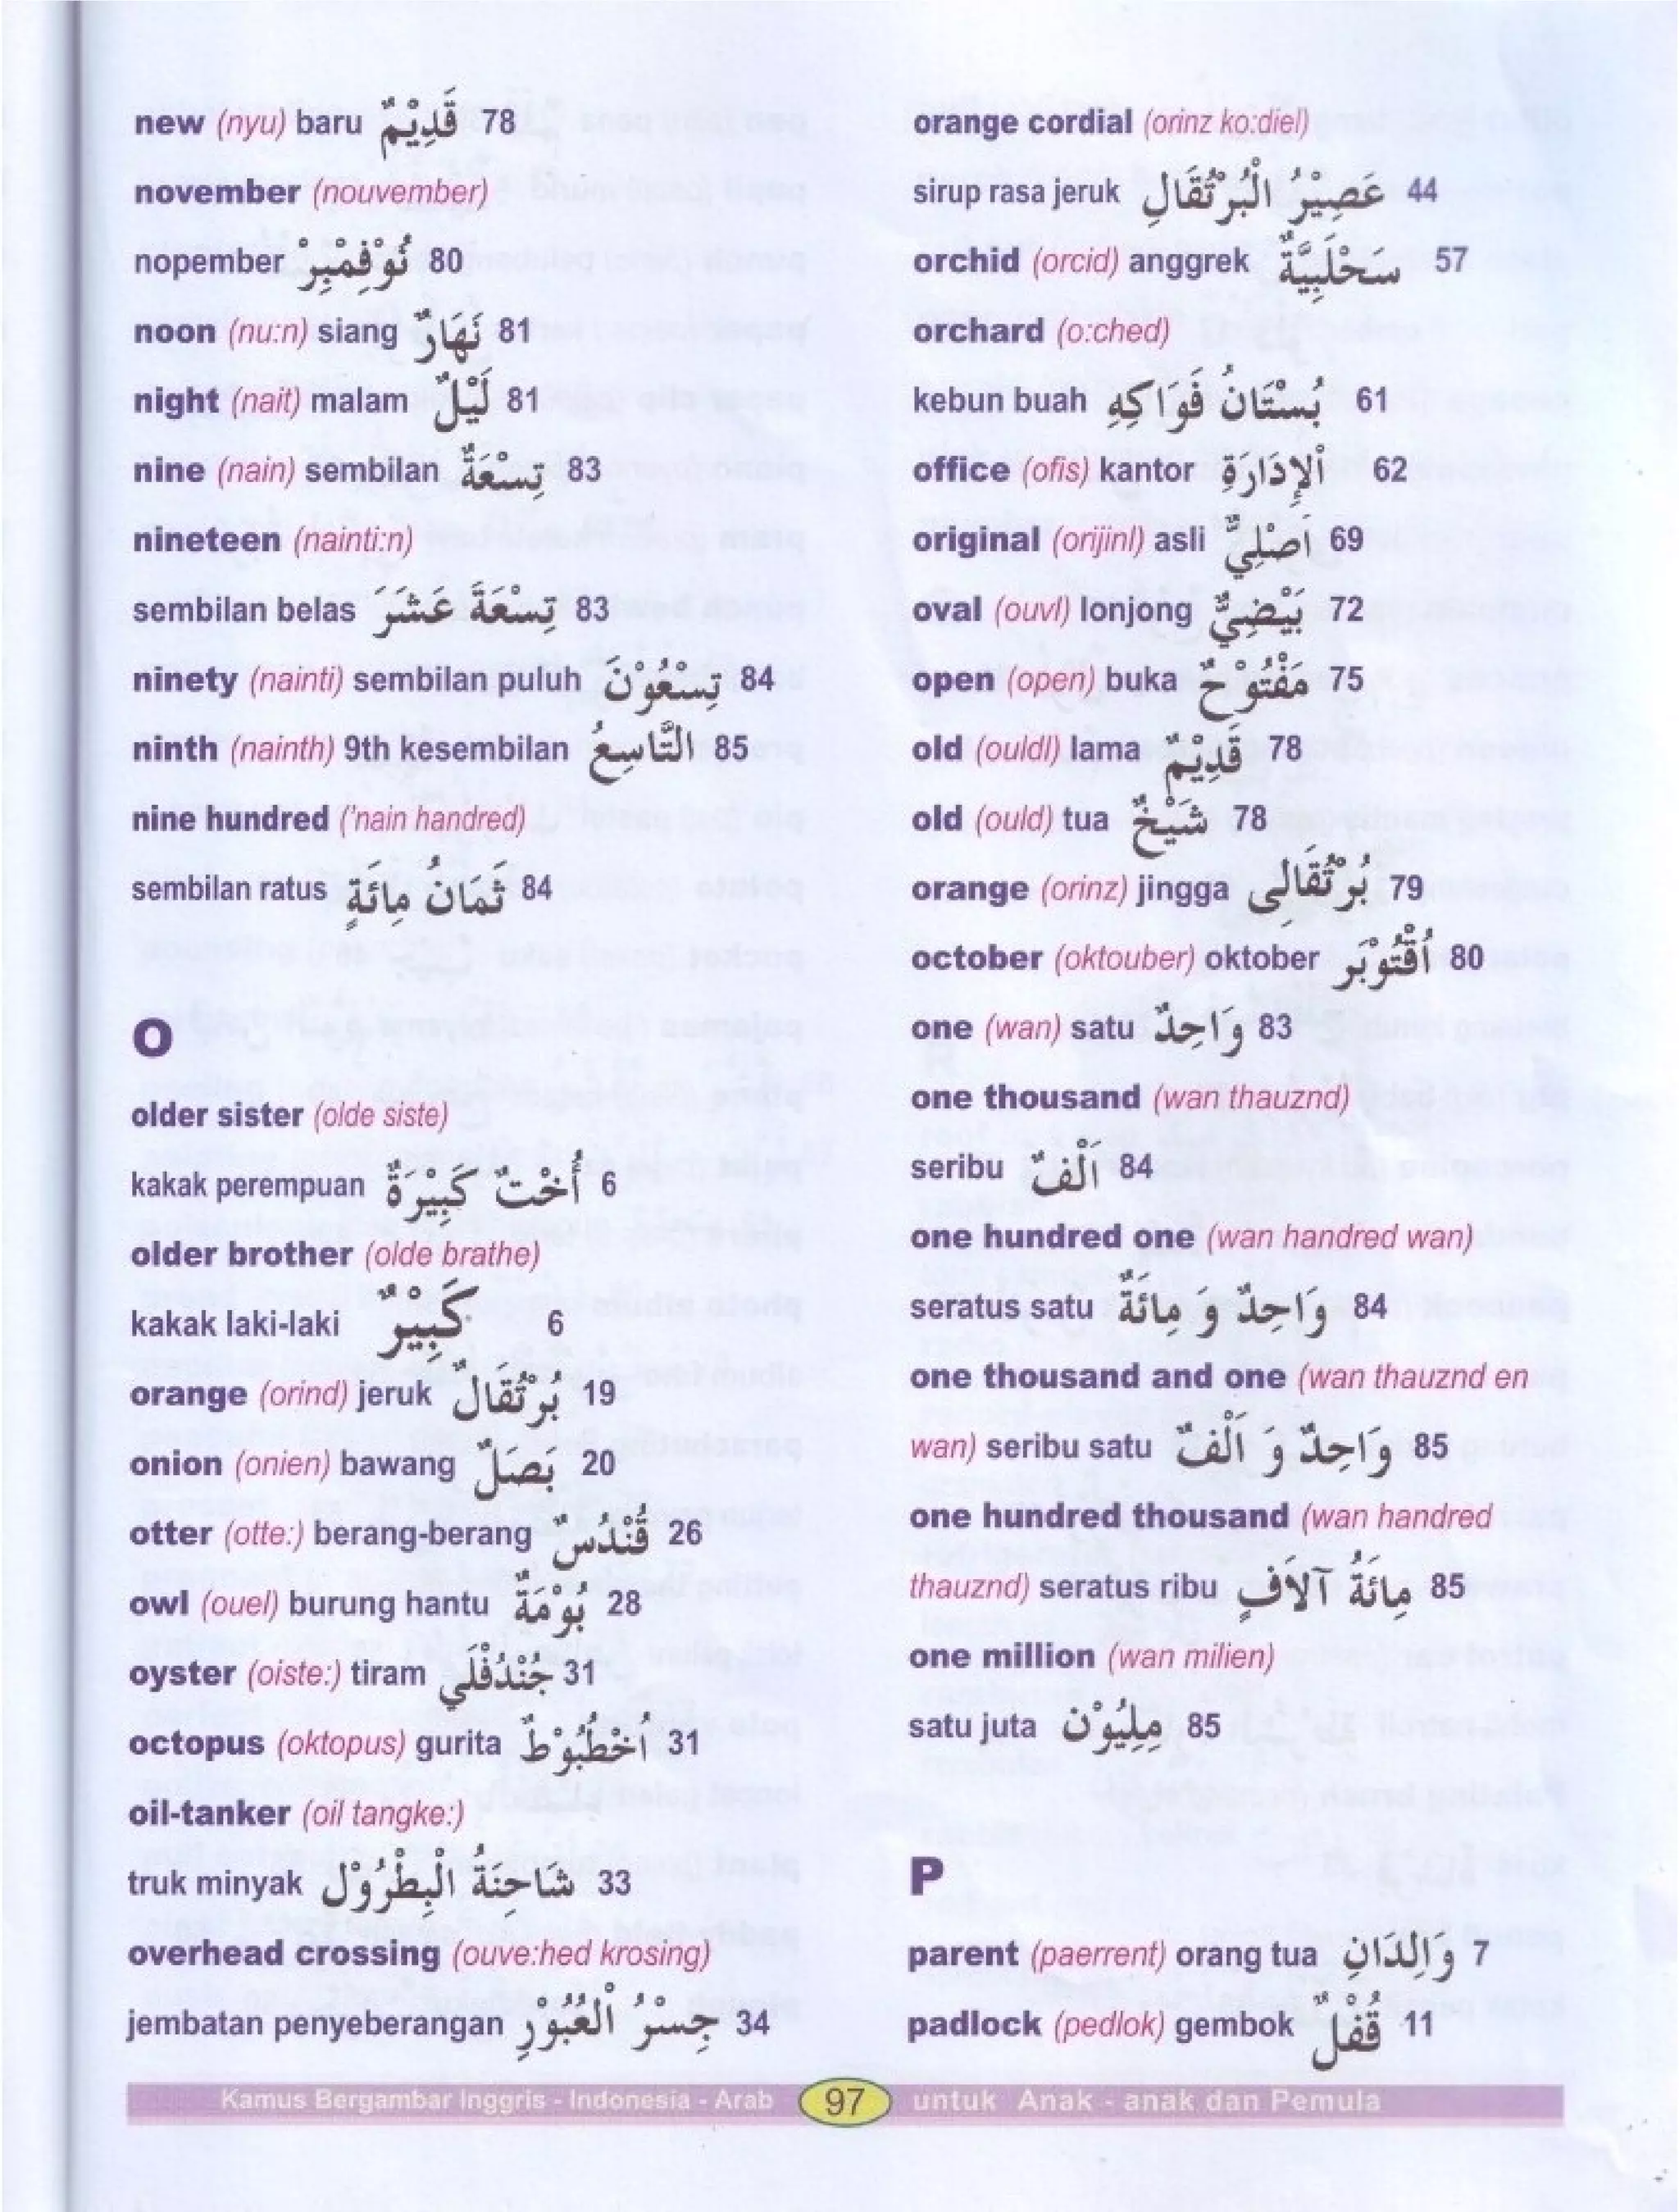 new (nyu) baru قَدِيْمٌ 78
november (nouvember)
nopember نُوْفِمْبِرْ 80
noon (nu:n) siang نَهَارٌ 81
night (nait) malam لَيْلٌ 81
nine (nain) sembilan تِسْعَةٌ 83
nineteen (nainti:n)
sembilan belas تِسْعَةَ عَشَرَ 83
ninety (nainti) sembilan puluh تِسْعُوْنَ 84
ninth (nainth) 9th kesembilan التَّاسِعُ 85
nine hundred ('nain handred)
sembilan ratus ثَمَانُ مِائَةٍ 84
O
older sister (olde siste)
kakak perempuan أُخْتٌ كَبِيْرَةٌ 6
older brother (olde brathe)
kakak laki-laki كَبِيْرٌ 6
orange (orind) jeruk بُرْتُقَالٌ 19
onion (onien) bawang بَصَلٌ 20
otter (otte:) berang-berang قُنْدُسٌ 26
owl (ouel) burung hantu بُوْمَةٌ 28
oyster (oiste:) tiram جُنْدُفْلَي 31
octopus (oktopus) gurita أُخْطُبُوْطٌ 31
oil-tanker (oil tangke:)
truk minyak شَاحِنَةُ الْبِطْرُوْل 33
overhead crossing (ouve:hed krosing)
jembatan penyeberangan جِسْرُ الْعُبُوْرِ 34
orange cordial (orinz ko:diel)
sirup rasa jeruk عَصِيْرُ الْبُرْتُقَالِ 44
orchid (orcid) anggrek سَحْلَبِيَّةٌ 57
orchard (o:ched)
kebun buah بُسْتَانُ فَوَاكِهِ 61
office (ofis) kantor اَلإِدَارَةِ 62
original (orijinl) asli اَصْلِيٌّ 69
oval (ouvl) lonjong بَيْضِيٌّ 72
open (open) buka مَفْتُوْحٌ 75
old (ouldl) lama قَدِيْمٌ 78
old (ould) tua شَيْخٌ 78
orange (orinz) jingga بُرْتُقَالِى 79
october (oktouber) oktober أُقْتُوْبَر 80
one (wan) satu وَاحِدٌ 83
one thousand (wan thauznd)
seribu اَلْفٌ 84
one hundred one (wan handred wan)
seratus satu وَاحِدٌ وَ مِائَةٌ 84
one thousand and one (wan thauznd en
wan) seribu satu وَاحِدٌ وَ اَلْفٌ 85
one hundred thousand (wan handred
thauznd) seratus ribu مِائَةُ آلاَفٍ 85
one million (wan milien)
satu juta مِلِيُوْن 85
P
parent (paerrent) orang tua وَالِدَانِ 7
padlock (pedlok) gembok قُفْلٌ 11
Kamus Bergambar Inggris - Indonesia - Arab 97 untuk Anak - anak dan Pemula